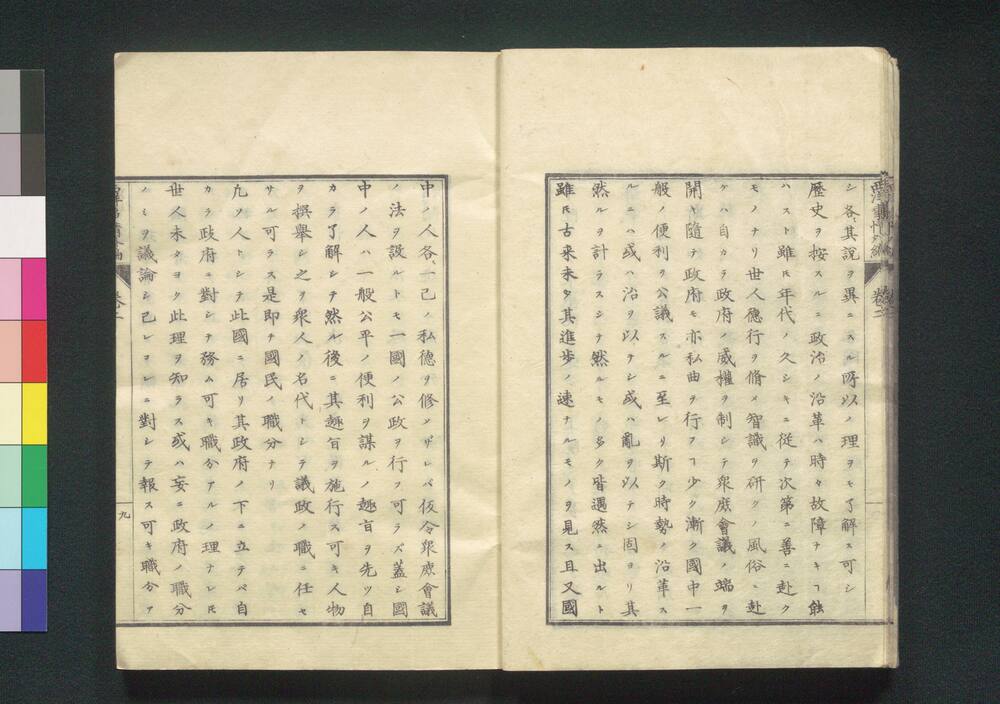 西洋事情外編 卷二
シ各其說ヲ異ニスル所以ノ理ヲモ了解ス可シ
歷史ヲ按スルニ政治ノ沿革ハ時々故障ナキヿ能
ハスト雖𪜈年代ノ久シキニ從テ次第ニ善ニ赴ク
モノナリ世人德行ヲ脩メ智識ヲ研クノ風俗ニ赴
ケハ自カラ政府ノ威權ヲ制シテ衆庶會議ノ端ヲ
開キ隨テ政府モ亦私曲ヲ行フヿ少ク漸ク國中一
般ノ便利ヲ公議スルニ至レリ斯ク時勢ノ沿革ス
ルニハ或ハ治ヲ以テシ或ハ亂ヲ以テシ固ヨリ其
然ルヲ計ラスシテ然ルモノ多ク皆遇然ニ出ルト
雖𪜈古来未タ其進歩ノ速ナルモノヲ見ス且又國
中ノ人各一己ノ私德ヲ修メザレバ仮令衆庶會議
ノ法ヲ設ルトモ一國ノ公政ヲ行フ可ラズ蓋シ國
中ノ人ハ一般公平ノ便利ヲ謀ルノ趣旨ヲ先ツ自
カラ了解シテ然ル後ニ其趣旨ヲ施行ス可キ人物
ヲ撰舉シ之ヲ衆人ノ名代トシテ議政ノ職ニ任セ
サル可ラス是即チ國民ノ職分ナリ
凡ソ人トシテ此國ニ居リ其政府ノ下ニ立テバ自
カラ政府ニ對シテ務ム可キ職分アルノ理ナレ𪜈
世人未タヨク此理ヲ知ラス或ハ妄ニ政府ノ職分
ノミヲ議論シ己レヨレニ對シテ報ス可キ職分ア
卷二
九